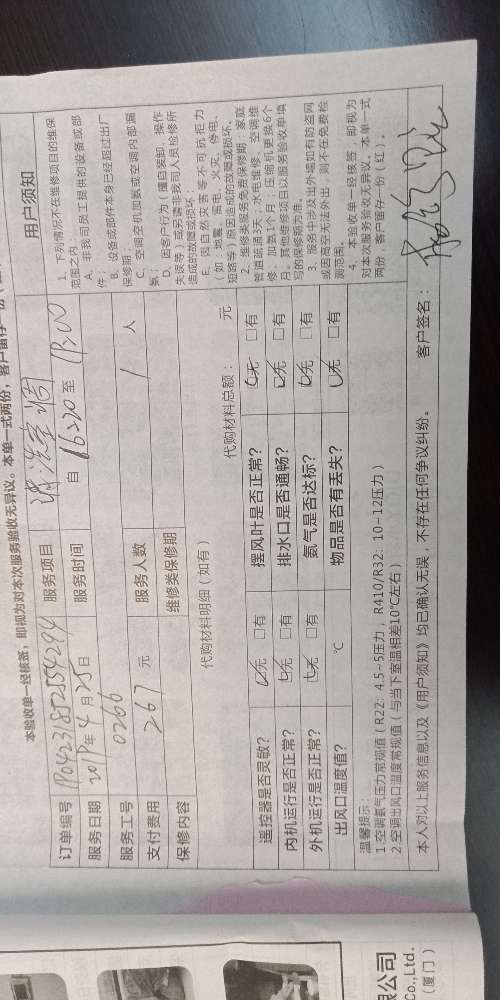 本验收单一经核签，即视为对本次服务验收无异议。本单一式两份，客户留存一份
订单编号 服务项目 清洗空调
服务日期 2019年4月25日 服务时间 自 16:20 至 17:00
服务工号 0266
支付费用 267 元 服务人数 1 人
保修内容 维修类保修期
代购材料明细（如有） 代购材料总额： 元
遥控器是否灵敏？ 无 有 摆风叶是否正常？ 无 有
内机运行是否正常？ 无 有 排水口是否通畅？ 无 有
外机运行是否正常？ 无 有 氨气是否达标？ 无 有
出风口温度值？ ℃ 物品是否有丢失？ 无 有
用户须知
1、下列情况不在维修项目的维保
范围之内
A、非我司员工提供的设备或部
件；
B、设备或部件本身已经超过出厂
保修期；
C、空调空机加氨或空调内部漏
氨；
D、因客户行为（擅自拆卸、操作
失误等）或另请非我司人员检修所
造成的故障或损坏；
E、因自然灾害等不可抗拒力
（如：地震、雷电、火灾、停电、
短路等）原因造成的故障或损坏。
2、维修类服务免费保修期：家庭
管道疏通3天；水电维修、空调维
修、加氨1个月；压缩机更换6个
月。其他维修项目以服务验收单填
写的保修期为准。
3、服务中涉及出外墙如有防盗网
或因高空无法外出，则不在免费检
测范围。
4、本验收单一经核签，即视为
对本次服务验收无异议。本单一式
两份：客户留存一份（红）。
温馨提示：
1.空调氨气压力常规值（R22: 4.5~5压力，R410/R32: 10-12压力）
2.空调出风口温度常规值（与当下室温相差10℃左右）
本人对以上服务信息以及《用户须知》均已确认无误，不存在任何争议纠纷。 客户签名：
限公司
Co.,Ltd.
（厦门）